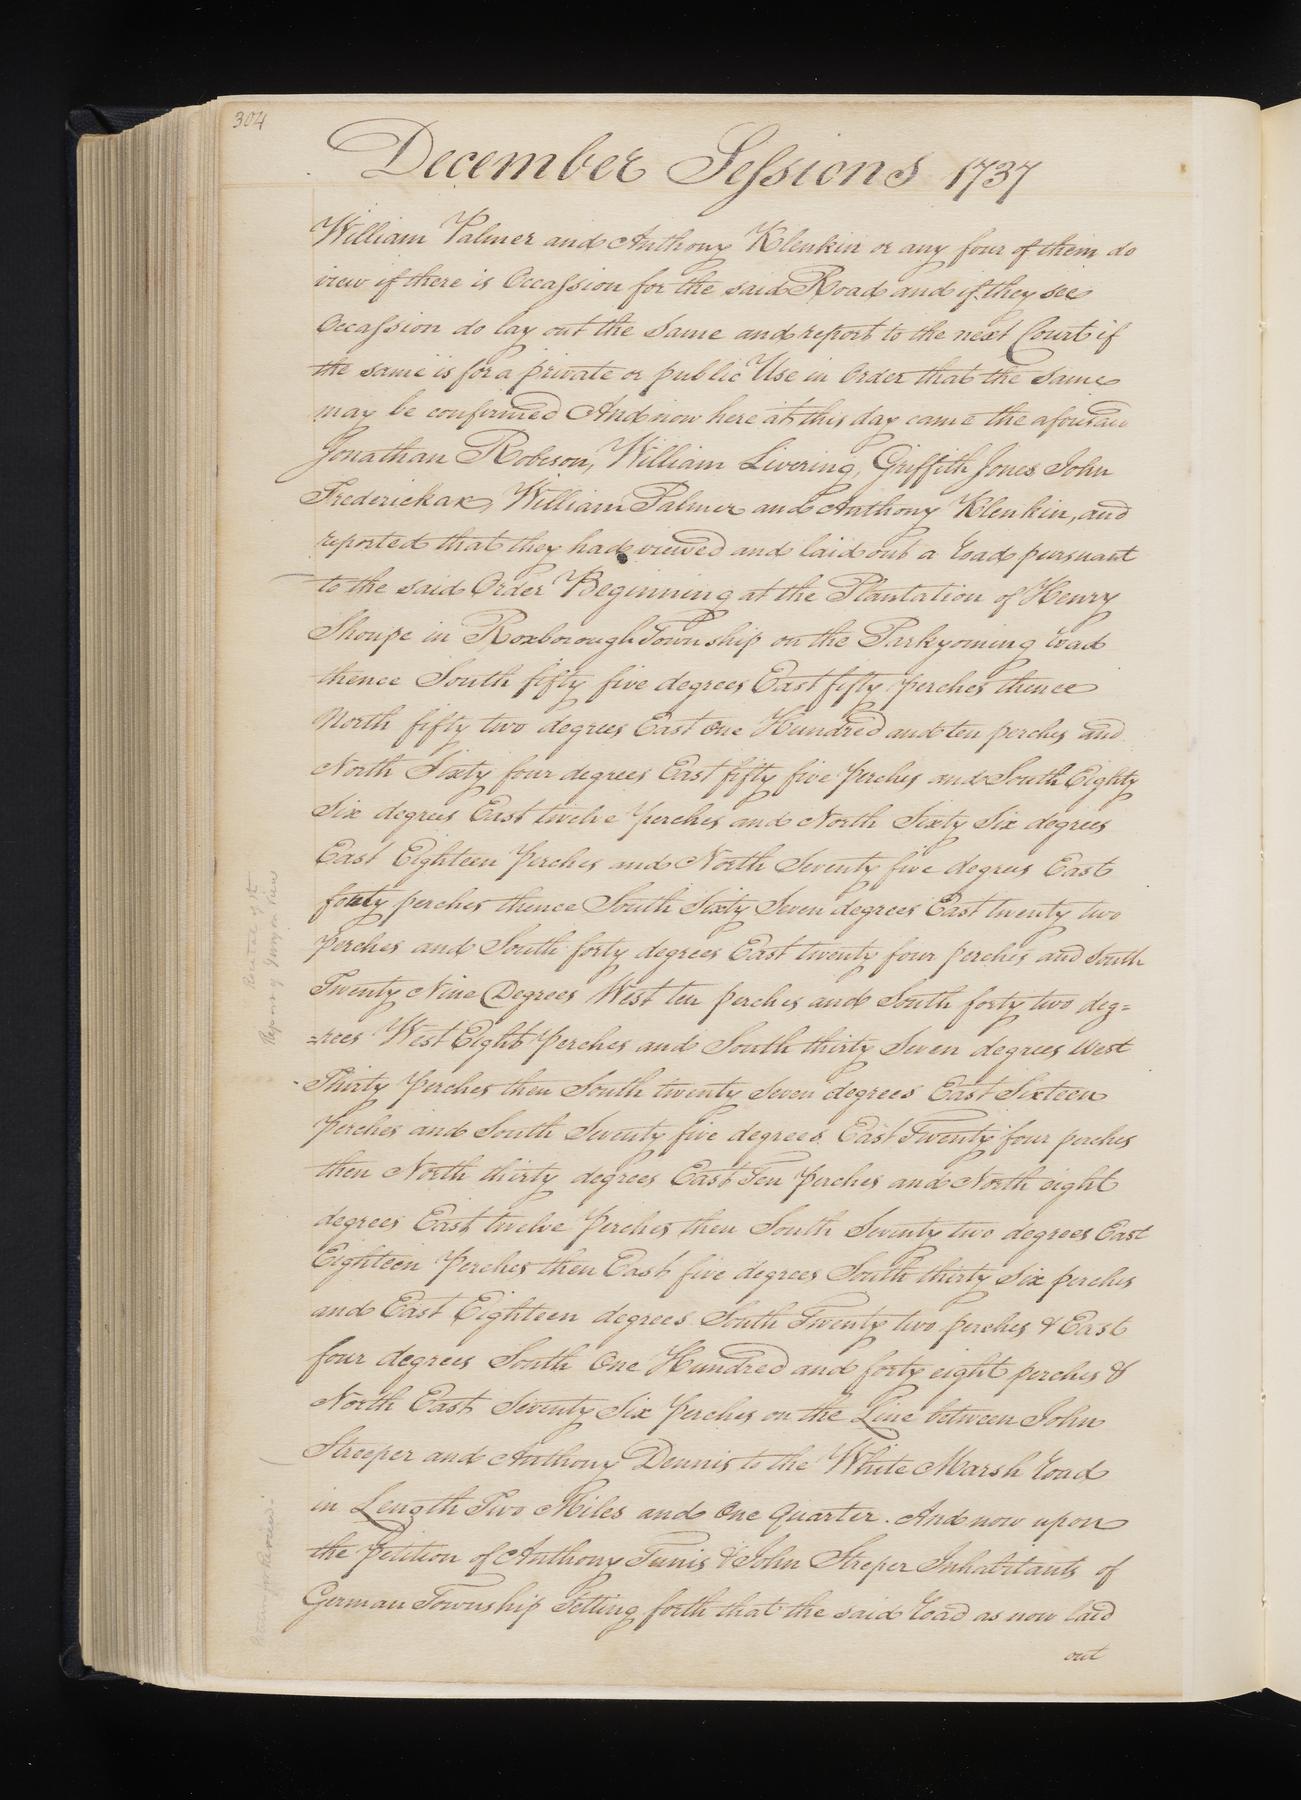 304
December Sessions 1737
William Palmer and Anthony Klenkin or any four of them do
view if there is Occassion for the said Road and if they see
Occassion do lay out the Same and report to the next Court if
the same is for a private or public Use in Order that the Same
may be confirmed And now here at this day came the aforesaid
Jonathan Robeson, William Livering, Griffith Jones John
Frederickax, William Palmer and Anthony Klenkin, and
reported that they had viewed and laid out a road pursuant
to the said Order Beginning at the Plantation of Henry
Shoupe in Roxborough Township on the Parkyoming road
thence South fifty five degrees East fifty perches thence
North fifty two degrees East One Hundred and ten perches and
North Sixty four degrees East fifty five Perches and South Eighty
Six degrees East twelve Perches and North Sixty Six degrees
East Eighteen Perches and North Seventy five degrees East
forty perches thence South Sixty Seven degrees East twenty two
Perches and South forty degrees East twenty four perches and South
Twenty Nine Degrees West ten perches and South forty two deg=
=rees West Eight Perches and South thirty Seven degrees West
Thirty Perches then South twenty Seven degrees East Sixteen
Perches and South Seventy five degrees East Twenty four perches
then North thirty degrees East Ten Perches and North eight
degrees East twelve Perches then South Seventy two degrees East
Eighteen Perches then East five degrees South thirty Six perches
and East Eighteen degrees South Twenty two perches & East
four degrees South One Hundred and forty eight perches &
North East Seventy Six Perches on the Line between John
Streeper and Anthony Dennis to the White Marsh road
in Length Two Miles and One quarter. And now upon
the Petition of Anthony Tunis & John Streper Inhabitants of
German Township Setting forth that the said road as now laid
out